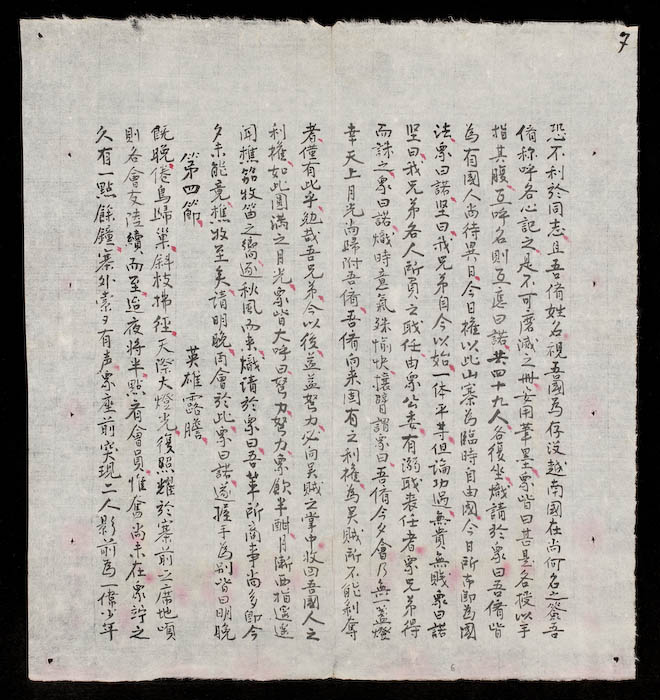 7
恐不利於同志且吾儕姓名視五國為存沒越南國在尚何名之簽吾
儕称呼各心記之是不可磨滅之冊安用筆墨衆皆曰甚是各授以手
指其腹互呼名則互應曰諾共四十九人各復坐熾請於衆曰吾儕皆
為有國人尚待異日今日権以此山寨為臨時自由國今日所布即為國
法衆曰諾坚曰我兄弟自今以始一体平等但論功過無貴無賤衆曰諾
坚曰我兄弟各人所負之職任由衆公委有溺職喪任者衆兄弟得
而誅之衆曰諾熾時意氣殊愉快懷謂衆曰吾儕今夕會乃無一盞燈
幸天上月光尚歸附吾儕吾儕向来固有之利権為吳賊所不能利奪
者僅有此乎勉哉吾兄弟今以後益益努力必向吳賊之掌中收回吾國人之
利権如此圓滿之月光衆皆大呼曰努力努力衆飲半酣月漸西指遥遥
聞樵笳牧笛之声逐秋風而来熾請於衆曰吾革所商事尚多即今
夕未能竟樵牧至矣請明晚再會於此衆曰諾遂握手為別皆曰明晚
第四節 英雄露膽
既晚倦鳥歸巢斜枝拂徑天際大燈光復照耀於寨前之席地頃
則各會友陸續而至迨夜將半點有會員惟奮尚未在衆竚之
久有一點餘鐘寨外索索有声衆座前突現二人影前為一偉少年
6